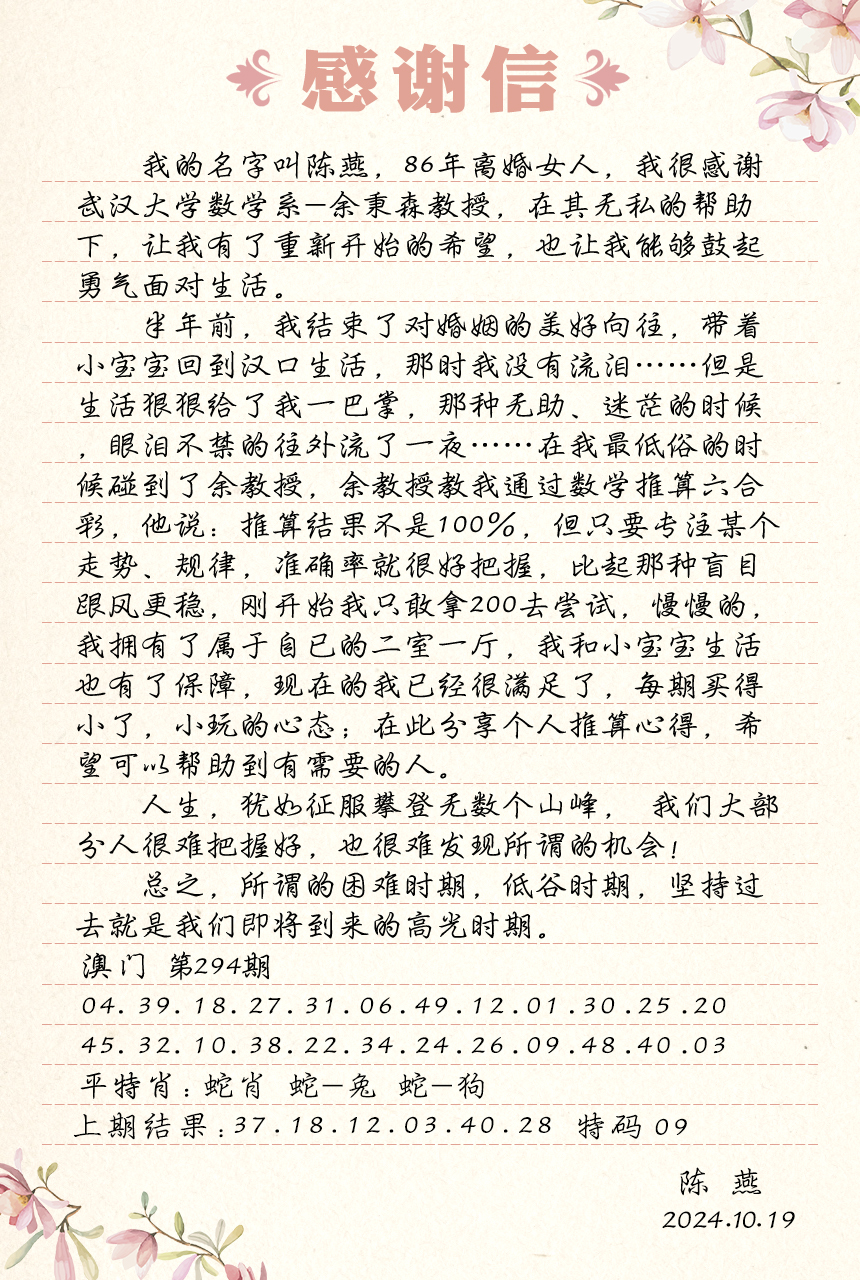 感谢信
我的名字叫陈燕，86年离婚女人，我很感谢
武汉大学数学系—余秉森教授，在其无私的帮助
下，让我有了重新开始的希望，也让我能够鼓起
勇气面对生活。
半年前，我结束了对婚姻的美好向往，带着
小宝宝回到汉口生活，那时我没有流泪……但是
生活狠狠给了我一巴掌，那种无助、迷茫的时候
，眼泪不禁的往外流了一夜……在我最低俗的时
候碰到了余教授，余教授教我通过数学推算六合
彩，他说：推算结果不是100%，但只要专注某个
走势、规律，准确率就很好把握，比起那种盲目
跟风更稳，刚开始我只敢拿200去尝试，慢慢的，
我拥有了属于自已的二室一厅，我和小宝宝生活
也有了保障，现在的我已经很满足了，每期买得
小了，小玩的心态；在此分享个人推算心得，希
望可以帮助到有需要的人。
人生，犹如征服攀登无数个山峰， 我们大部
分人很难把握好，也很难发现所谓的机会！
总之，所谓的困难时期，低谷时期，坚持过
去就是我们即将到来的高光时期。
澳门 第294期
04.39.18.27.31.06.49.12.01.30.25.20
45.32.10.38.22.34.24.26.09.48.40.03
平特肖：蛇肖 蛇—兔 蛇—狗
上期结果：37.18.12.03.40.28 特码 09
陈 燕
2024.10.19